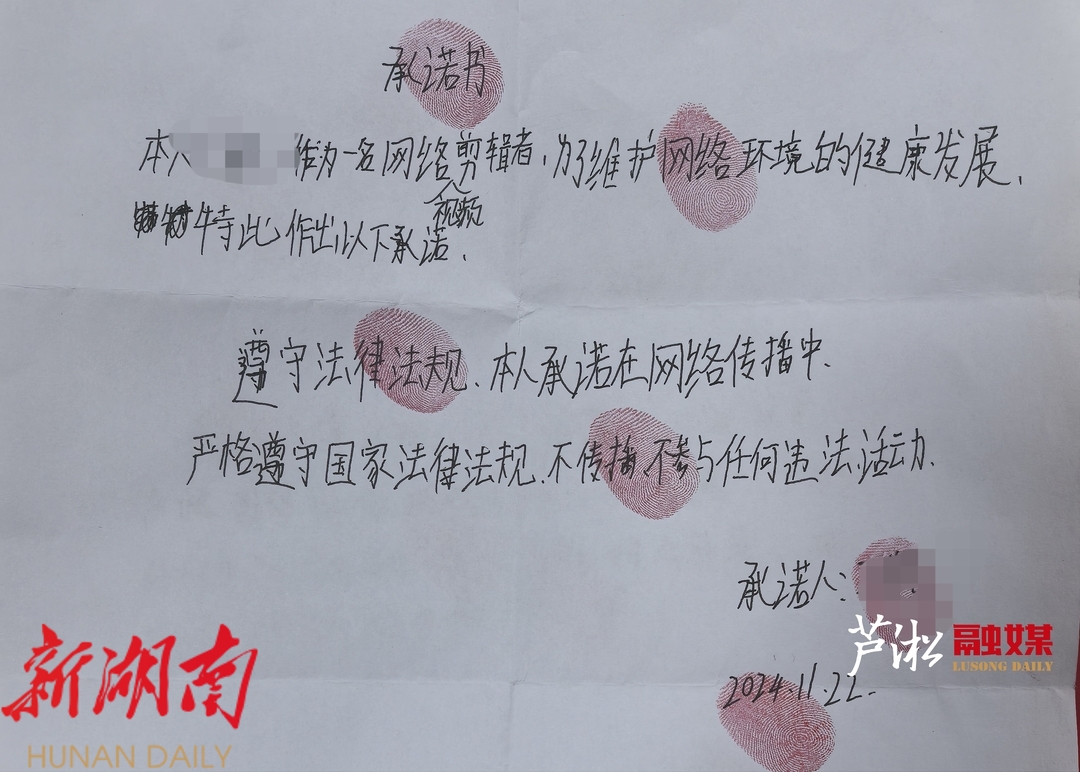 承诺书
本人 作为一名网络视频剪辑者,为了维护网络环境的健康发展、
特此作出以下承诺、
遵守法律法规、本人承诺在网络传播中、
严格遵守国家法律法规、不传播、不参与任何违法活动、
承诺人:
2024.11.22.
芦淞 融媒
LUSONG DAILY
新湖南
HUNAN DAILY